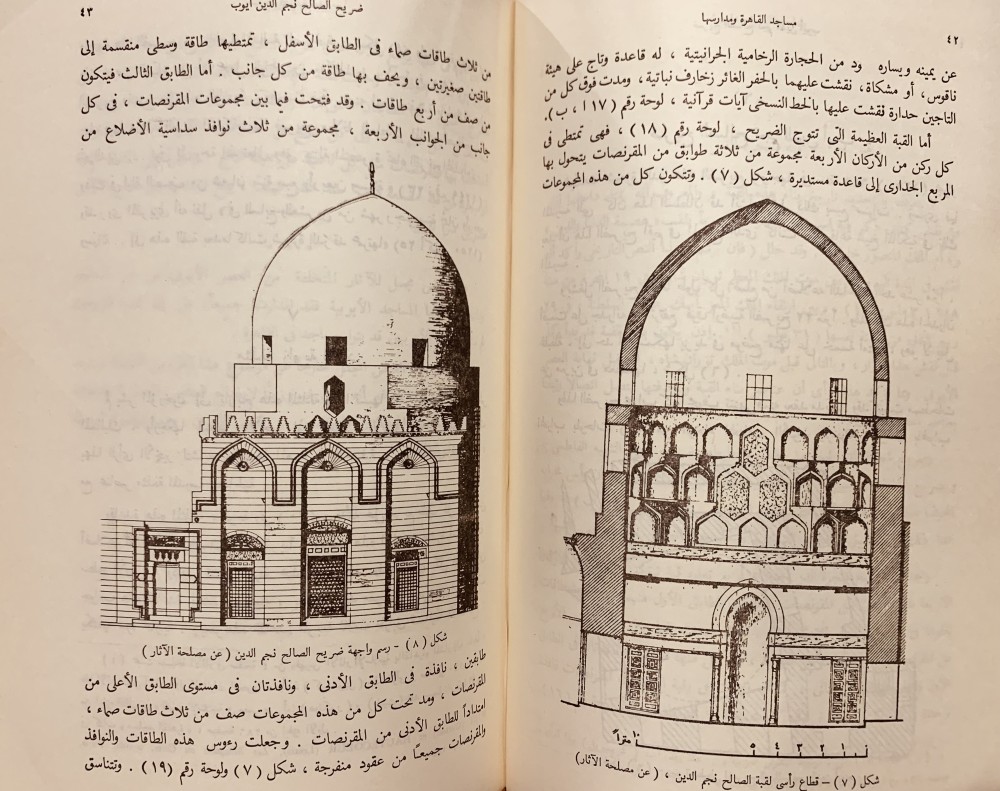 مساجد القاهرة ومدارسها
٤٢
عن يمينه ويساره ود من الحجارة الرخامية الجرانيتية ، له قاعدة وتاج على هيئة
ناقوس ، أو مشكاة ، نقشت عليهما بالحفر الغائر زخارف نباتية ، ومدت فوق كل من
التاجين حدارة نقشت عليها بالخط النسخى آيات قرآنية ، لوحة رقم (١٧ ا ، ب).
أما القبة العظيمة التى تتوج الضريح ، لوحة رقم (١٨) ، فهى تمتطى فى
كل ركن من الأركان الأربعة مجموعة من ثلاثة طوابق من المقرنصات يتحول بها
المربع الجدارى إلى قاعدة مستديرة ، شكل (٧) . وتتكون كل من هذه المجموعات
١ ٢ ٣ ٤ ٥ ١٠ متراً
شكل (٧) – قطاع رأسى لقبة الصالح نجم الدين ، (عن مصلحة الآثار)
ضريح الصالح نجم الدين أيوب
٤٣
من ثلاث طاقات صماء فى الطابق الأسفل ، تمتطيها طاقة وسطى منقسمة إلى
طاقتين صغيرتين ، ويحف بها طاقة من كل جانب . أما الطابق الثالث فيتكون
من صف من أربع طاقات . وقد فتحت فيما بين مجموعات المقرنصات ، فى كل
جانب من الجوانب الأربعة ، مجموعة من ثلاث نوافذ سداسية الأضلاع من
شكل (٨) – رسم واجهة ضريح الصالح نجم الدين (عن مصلحة الآثار)
طابقين ، نافذة فى الطابق الأدنى ، ونافذتان فى مستوى الطابق الأعلى من
المقرنصات ، ومد تحت كل من هذه المجموعات صف من ثلاث طاقات صماء ،
امتداداً للطابق الأدنى من المقرنصات . وجعلت رءوس هذه الطاقات والنوافذ
والمقرنصات جميعاً من عقود منفرجة ، شكل (٧) ولوحة رقم (١٩) . وتتناسق